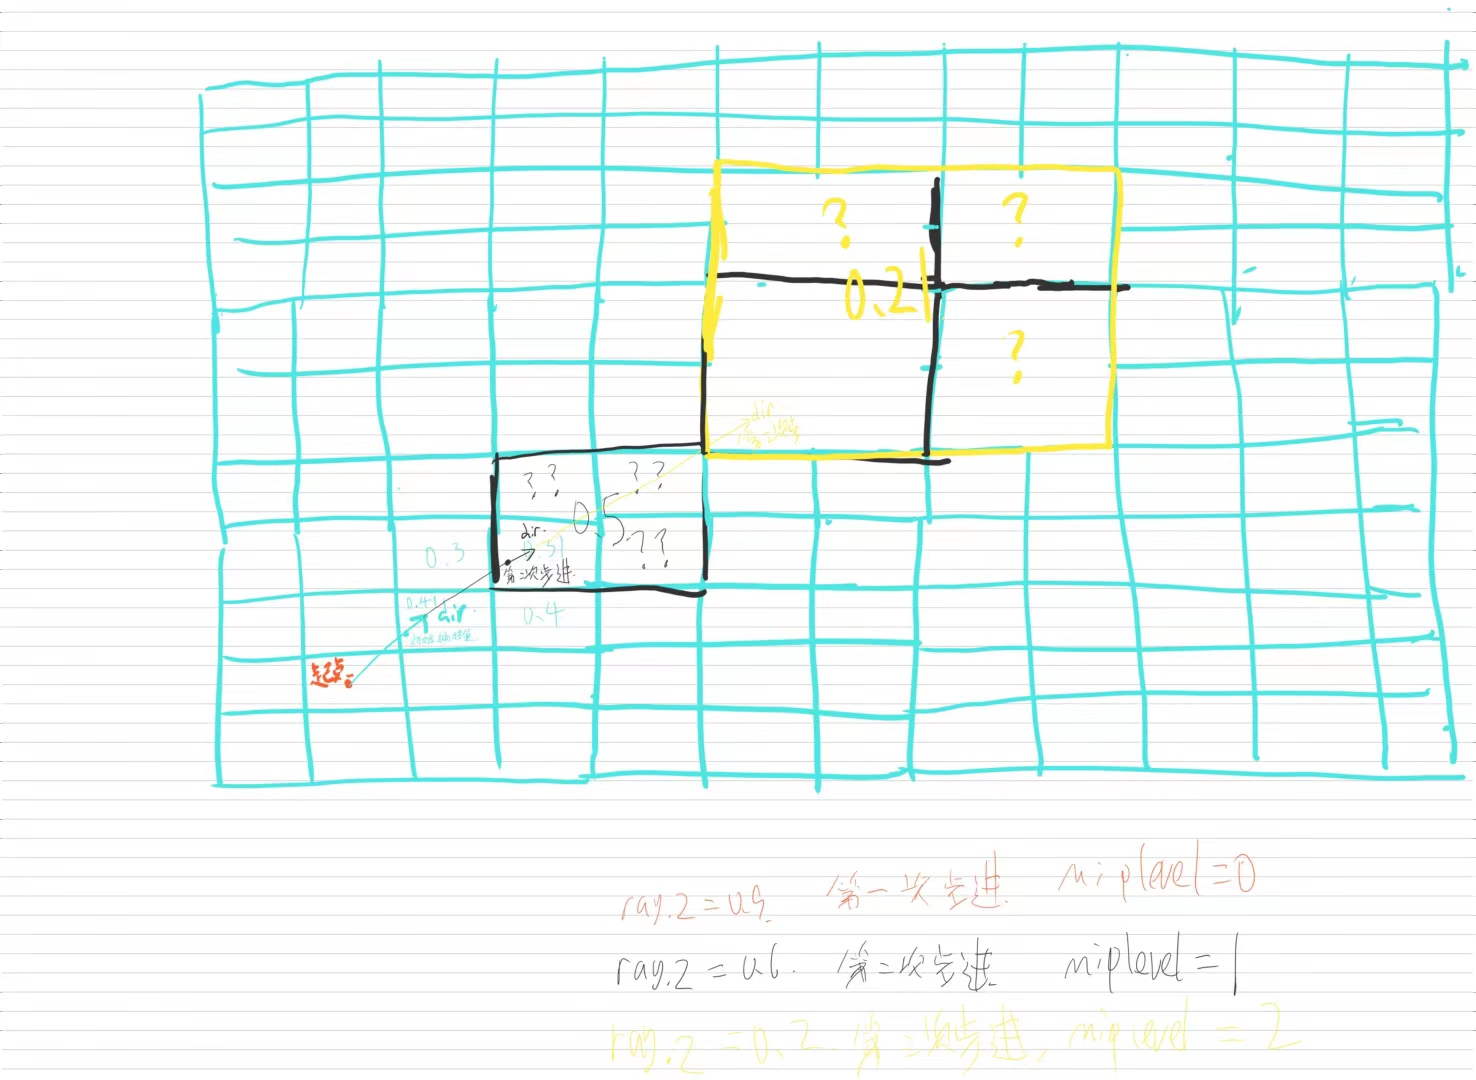 ? ?
0.21
?
dir
?? ??
0.5
dir.
0.3 ??
第二次步进.
0.41 dir. 0.4
起点
ray.z = 0.9. 第一次步进. miplevel=0
ray.z = 0.6. 第二次步进 miplevel=1
ray.z = 0.2. 第三次步进, miplevel = 2